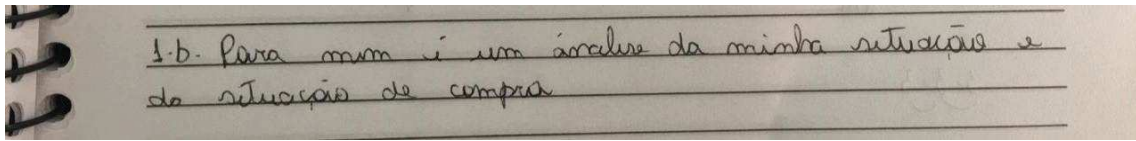 1.b. Para mim é um análise da minha situação e
da situação de compra